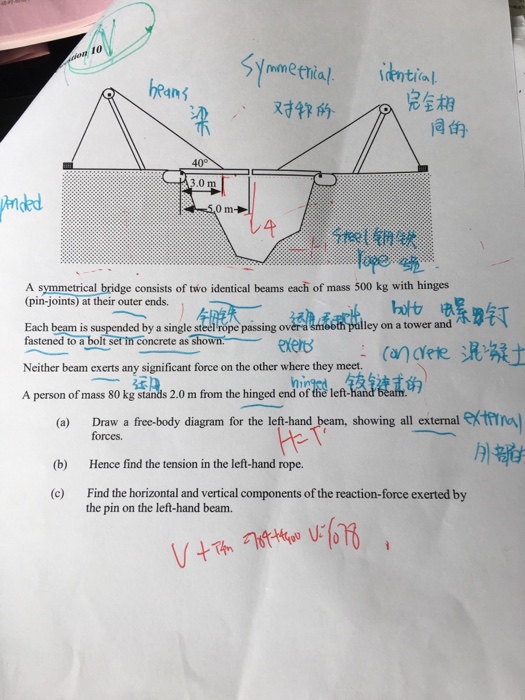 10
beams
梁
Symmetrial.
对称的
identical
完全相
同的
40°
3.0 m
5.0 m
4
steel 钢铁
rope
A symmetrical bridge consists of two identical beams each of mass 500 kg with hinges
(pin-joints) at their outer ends.
bolt
Each beam is suspended by a single steel rope passing over a smooth pulley on a tower and
fastened to a bolt set in concrete as shown.
exerts
concrete 混凝土
Neither beam exerts any significant force on the other where they meet.
hinged
A person of mass 80 kg stands 2.0 m from the hinged end of the left-hand beam.
(a) Draw a free-body diagram for the left-hand beam, showing all external
forces.
external
外部的
H=T
(b) Hence find the tension in the left-hand rope.
(c) Find the horizontal and vertical components of the reaction-force exerted by
the pin on the left-hand beam.